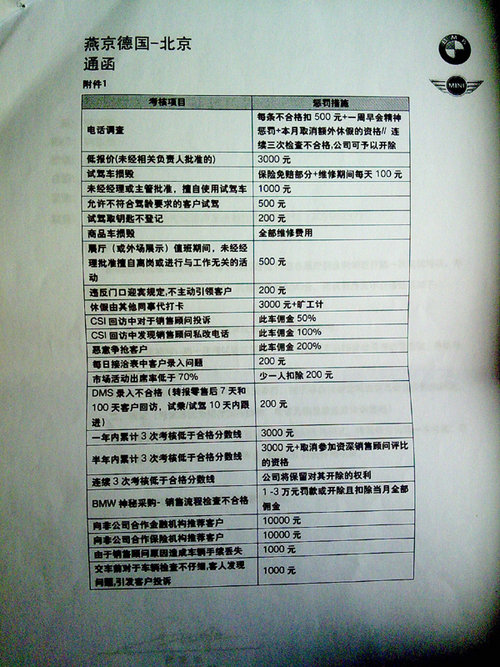 燕京德国-北京
通函
附件1
BMW
MINI
考核项目 惩罚措施
电话调查 每条不合格扣 500 元+一周早会精神
惩罚+本月取消额外休假的资格// 连
续三次检查不合格,公司可予以开除
低报价(未经相关负责人批准的) 3000 元
试驾车损毁 保险免赔部分+维修期间每天 100 元
未经经理或主管批准，擅自使用试驾车 1000 元
允许不符合驾龄要求的客户试驾 500 元
试驾取钥匙不登记 200 元
商品车损毁 全部维修费用
展厅（或外场展示）值班期间，未经经
理批准擅自离岗或进行与工作无关的活
动 500 元
违反门口迎宾规定,不主动引领客户 200 元
休假由其他同事代打卡 3000 元+旷工计
CSI 回访中对于销售顾问投诉 此车佣金 50%
CSI 回访中发现销售顾问私改电话 此车佣金 100%
恶意争抢客户 此车佣金 200%
每日接洽表中客户录入问题 200 元
市场活动出席率低于 70% 少一人扣除 200 元
DMS 录入不合格（转报零售后 7 天和
100 天客户回访，试乘/试驾 10 天内跟
进） 200 元
一年内累计 3 次考核低于合格分数线 3000 元
半年内累计 3 次考核低于合格分数线 3000 元+取消参加资深销售顾问评比
的资格
连续 3 次考核低于合格分数线 公司将保留对其开除的权利
BMW 神秘采购- 销售流程检查不合格 1 -3 万元罚款或开除且扣除当月全部
佣金
向非公司合作金融机构推荐客户 10000 元
向非公司合作保险机构推荐客户 10000 元
由于销售顾问原因造成车辆手续丢失 1000 元
交车前对于车辆检查不仔细,客人发现
问题,引发客户投诉 1000 元